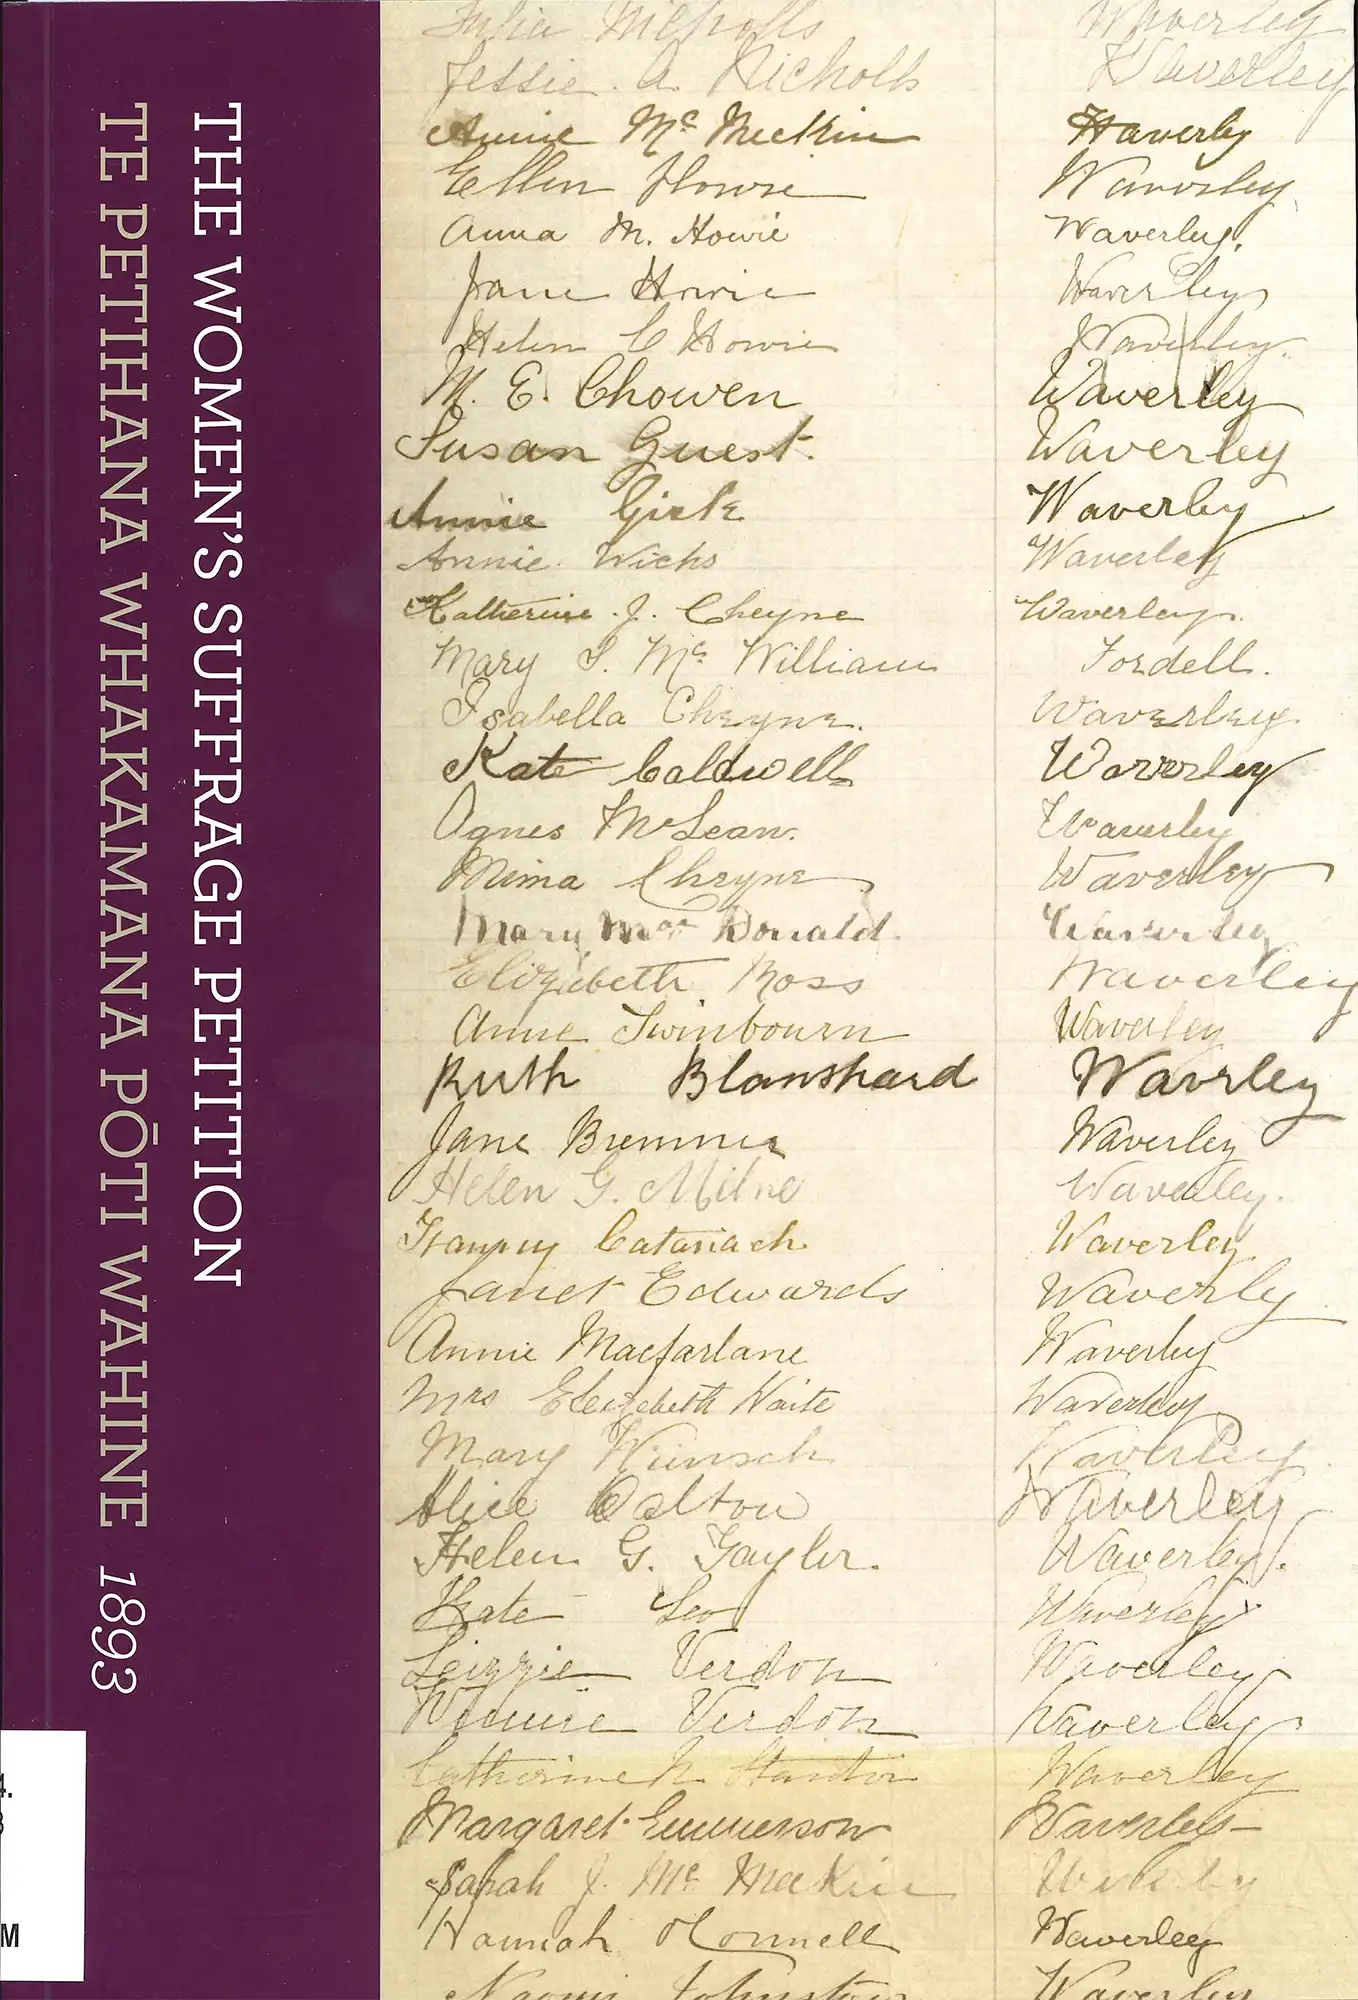 THE WOMEN'S SUFFRAGE PETITION
TE PETIHANA WHAKAMANA PŌTI WAHINE 1893
Julia Nicholls Waverley
Jessie A. Nicholls Waverley
Annie Mc Meekin Waverly
Ellen Howie Waverley
Anna M. Howie Waverley.
Jane Howie Waverley
Helen C Howie Waverley.
M. E. Chowen Waverley
Susan Guest. Waverley
Annie Waverley
Annie Wicks Waverley
Katherine J. Cheyne Waverley.
Mary S. Mc William Fordell.
Isabella Cheyne. Waverley.
Kate Caldwell Waverley
Agnes McLean. Waverley
Mima Cheyne Waverley
Mary Mac Donald. Waverley
Elizabeth Ross Waverley
Anne Swinbourn Waverley
Ruth Blanshard Waverley
Jane Bremner Waverley
Helen G. Milne Waverley.
Catanach Waverley
Janet Edwards Waverley
Annie Macfarlane Waverley
Mrs Elizabeth Waite Waverley
Mary Wunsch Waverley.
Alice Dalton Waverley
Helen G. Gayler. Waverley.
Kate Waverley
Lizzie Verdon Waverley
Winnie Verdon Waverley
Catherine N. Stanton Waverley
Margaret Gunnerson Waverley
Sarah J. Mc Meekin
Hannah OConnell Waverley
Naomi Johnston Waverley
4.
M